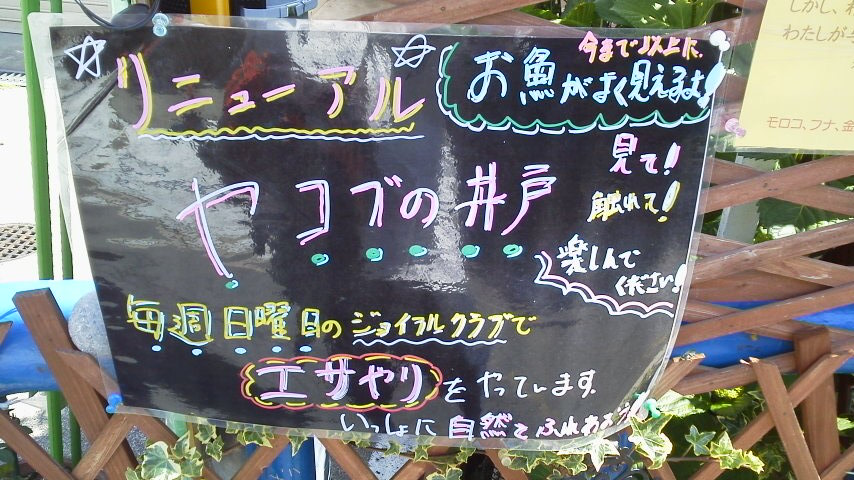 リニューアル
今まで以上に、
お魚がよく見えるよ!
ヤコブの井戸
見て!
触れて!
楽しんで
ください!
毎週日曜日のジョイフルクラブで
エサやりをやっています。
いっしょに自然とふれあおう!
しかし、わ
わたしが与
モロコ、フナ、金